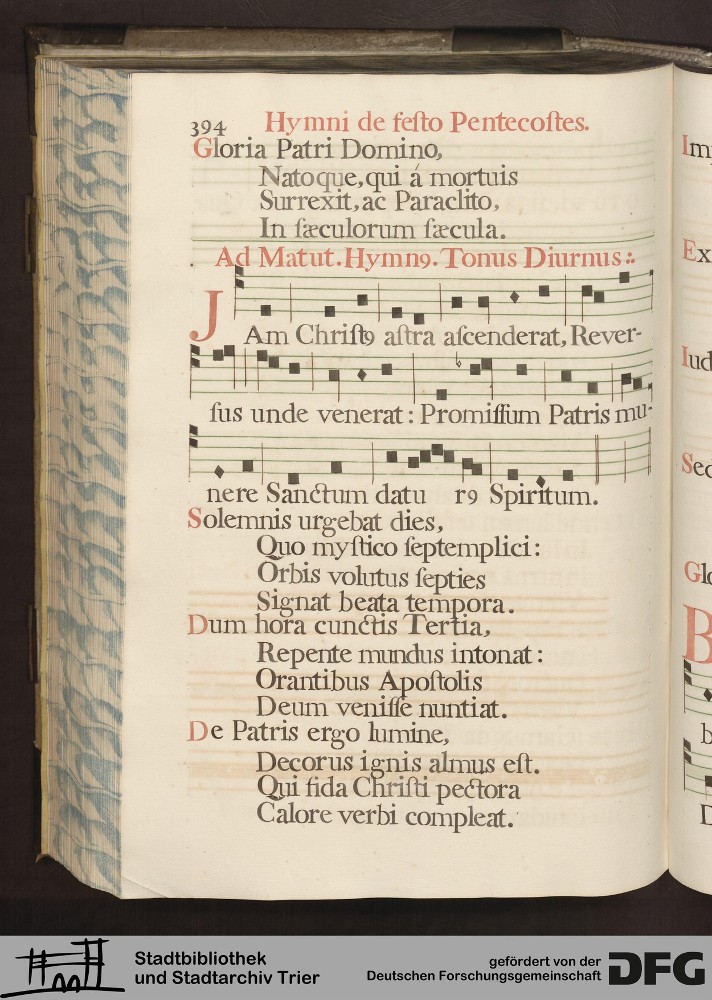 394 Hymni de feſto Pentecoſtes.
Gloria Patri Domino,
Natoque, qui á mortuis
Surrexit, ac Paraclito,
In fæculorum fæcula.
Ad Matut. Hymn9. Tonus Diurnus:.
JAm Chriſt9 aſtra aſcenderat, Rever-
ſus unde venerat: Promiſſum Patris mu-
nere Sanctum datu r9 Spiritum.
Solemnis urgebat dies,
Quo myſtico ſeptemplici:
Orbis volutus ſepties
Signat beata tempora.
Dum hora cunctis Tertia,
Repente mundus intonat:
Orantibus Apoſtolis
Deum veniſſe nuntiat.
De Patris ergo lumine,
Decorus ignis almus eſt.
Qui fida Chriſti pectora
Calore verbi compleat.
Im
Ex
Iud
Sed
Glo
B
b
D
Stadtbibliothek
und Stadtarchiv Trier
gefördert von der
Deutschen Forschungsgemeinschaft
DFG